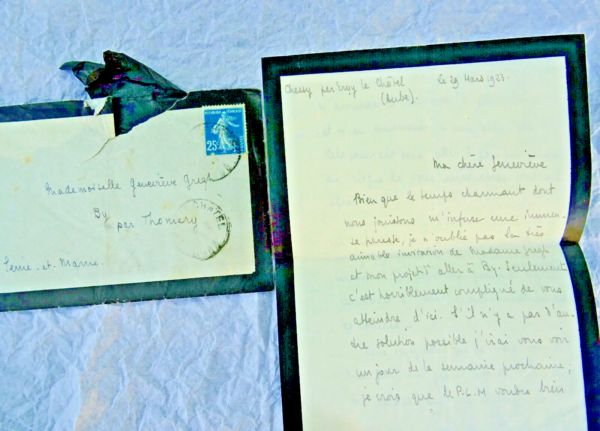 Mademoiselle Geneviève
By
par Thomery
Seine-et-Marne.
25c
CHATEL
Chessy par Ervy le Châtel
(Aube).
Le 29 Mars 1923.
Ma chère Geneviève
Bien que le temps charmant dont
nous jouissons m'infuse une immen-
se paresse, je n'oublie pas la très
aimable invitation de Madame
et mon projet d'aller à By. Seulement
c'est horriblement compliqué de vous
atteindre d'ici. S'il n'y a pas d'au-
tre solution possible j'irai vous voir
un jour de la semaine prochaine;
je crois que le P.L.M voudra bien